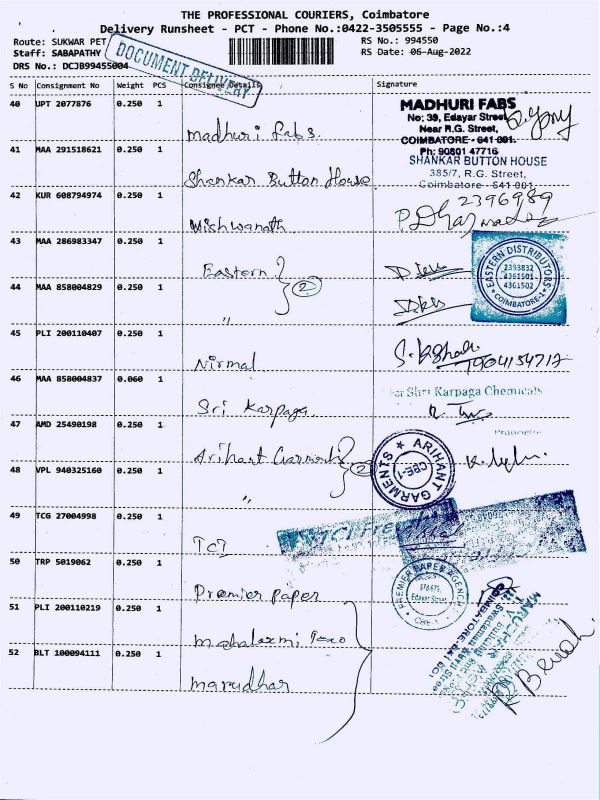 THE PROFESSIONAL COURIERS, Coimbatore
Delivery Runsheet - PCT - Phone No.:0422-3505555 - Page No.:4
Route: SUKWAR PET
RS No.: 994550
Staff: SABAPATHY
RS Date: 06-Aug-2022
DRS No.: DCJB99455004
DOCUMENT DELIVERY
S No Consignment No Weight PCS Consignee Details Signature
40 UPT 2077876 0.250 1
Madhuri fabs.
MADHURI FABS
No: 39, Edayar Street,
Near R.G. Street,
COIMBATORE - 641 001.
Ph: 90801 47716
41 MAA 291518621 0.250 1
Shankar Button House
SHANKAR BUTTON HOUSE
385/7, R.G. Street,
Coimbatore - 641 001
42 KUR 608794974 0.250 1
Vishwanath
2396989
43 MAA 286983347 0.250 1
Eastern
2
EASTERN DISTRIBUTORS
2393832
4361501
4361502
COIMBATORE-1
44 MAA 858004829 0.250 1
"
45 PLI 200110407 0.250 1
Nirmal
46 MAA 858004837 0.060 1
Sri Karpaga
For Shri Karpaga Chemicals
47 AMD 25490198 0.250 1
Arihant Garments
2
ARIHANT GARMENTS
CBE-1
48 VPL 940325160 0.250 1
"
49 TCG 27004998 0.250 1
TCI
50 TRP 5019062 0.250 1
Premier paper
PREMIER PAPER AGENCY
Edayar Street
CBE-1
51 PLI 200110219 0.250 1
Mahalaxmi
52 BLT 100094111 0.250 1
Marudhar
COIMBATORE-641 001